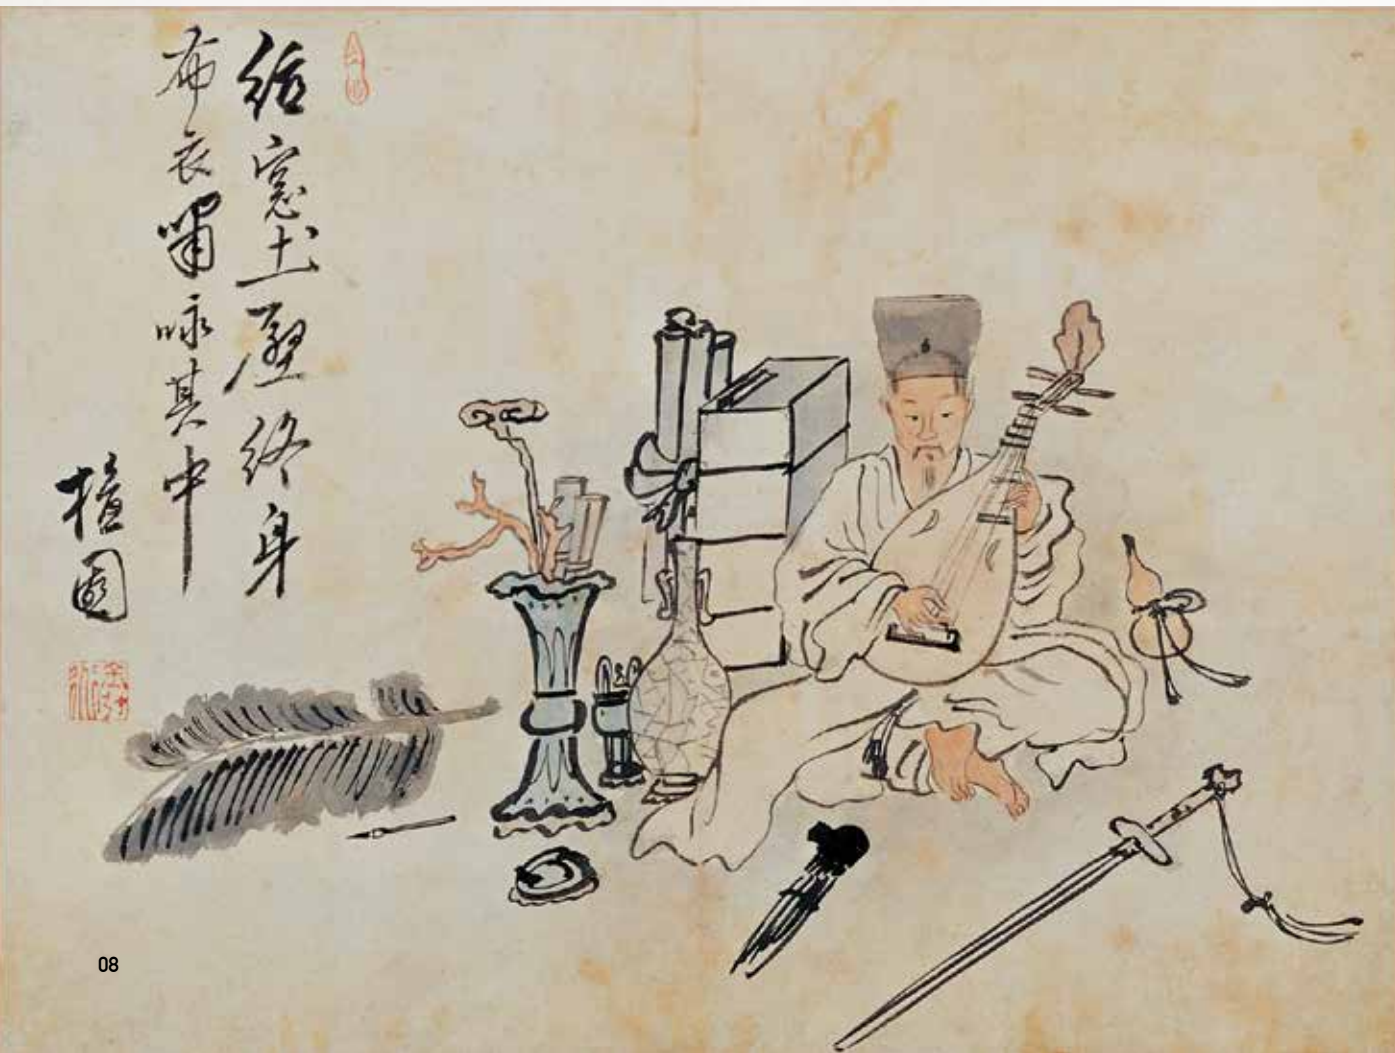 紙窓土壁終身
布衣嘯咏其中
檀園
08